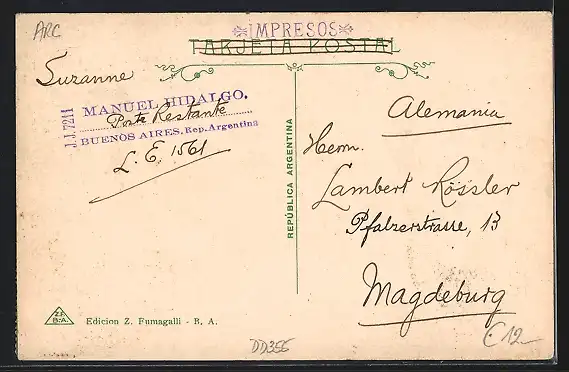 ARC
*IMPRESOS*
TARJETA POSTAL
Suzanne
J.J.7211
MANUEL HIDALGO.
Poste Restante
BUENOS AIRES. Rep. Argentina
L. E. 1561
REPÚBLICA ARGENTINA
Alemania
Herrn.
Lambert Rössler
Pfalzerstrasse, 13
Magdeburg
Z.F.
B.A.
Edicion Z. Fumagalli - B. A.
DD356
€12